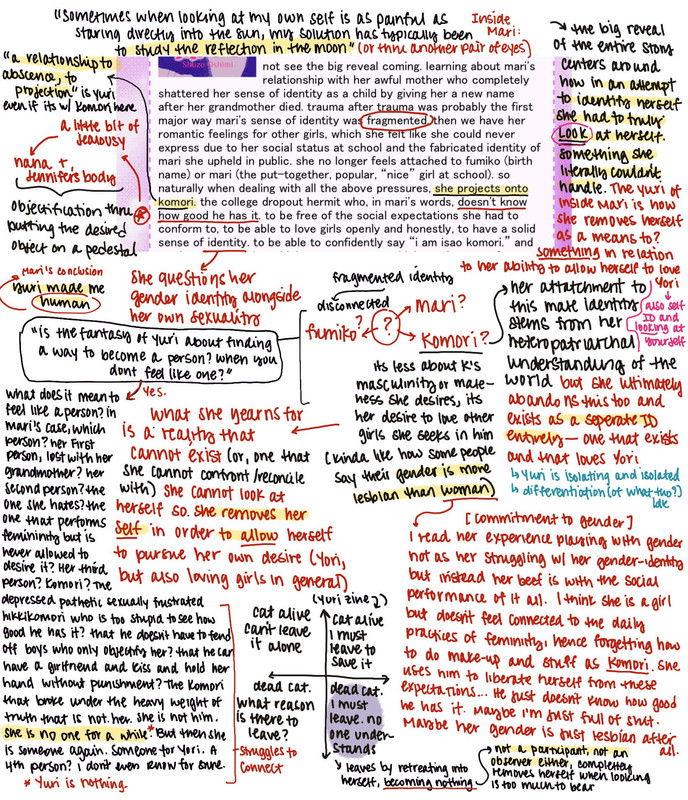 "Sometimes when looking at my own self is as painful as
staring directly into the sun, my solution has typically been
to study the reflection in the moon" (or thru another pair of eyes)
Inside
Mari:
"a relationship to
absence, to
projection" is yuri
even if its w/ Komori here
a little bit of
jealousy
nana +
Jennifer's body
objectification thru
putting the desired
object on a pedestal
Shuzo Oshimi
not see the big reveal coming. learning about mari's
relationship with her awful mother who completely
shattered her sense of identity as a child by giving her a new name
after her grandmother died. trauma after trauma was probably the first
major way mari's sense of identity was fragmented. then we have her
romantic feelings for other girls, which she felt like she could never
express due to her social status at school and the fabricated identity of
mari she upheld in public. she no longer feels attached to fumiko (birth
name) or mari (the put-together, popular, "nice" girl at school). so
naturally when dealing with all the above pressures, she projects onto
komori. the college dropout hermit who, in mari's words, doesn't know
how good he has it. to be free of the social expectations she had to
conform to, to be able to love girls openly and honestly, to have a solid
sense of identity. to be able to confidently say "i am isao komori." and
→ the big reveal
of the entire story
centers around
how in an attempt
to identify herself
she had to truly
LOOK at herself.
something she
literally couldnt
handle. The yuri of
inside Mari is how
she removes herself
as a means to?
something in relation
to her ability to allow herself to love
Yori
Mari's conclusion
yuri made me
human
She questions her
gender identity alongside
her own sexuality
fragmented identity
disconnected
fumiko?
?
Mari?
Komori?
her attatchment to
this male identity
stems from her
heteropatriarchal
understanding of the
world but she ultimately
abandons this too and
exists as a seperate ID
entirely— one that exists
and that loves Yori
↳ Yuri is isolating and isolated
↳ differentiation (of what tho?)
idk
also self
ID and
looking at
yourself
"is the fantasy of yuri about finding
a way to become a person? when you
dont feel like one?"
yes.
What does it mean to
feel like a person? in
mari's case, which
person? her first
person, lost with her
grandmother? her
second person? the
one she hates? the
one that performs
femininity but is
never allowed to
desire it? Her third
person? Komori? The
depressed pathetic sexually frustrated
hikkikomori who is too stupid to see how
good he has it? that he doesn't have to fend
off boys who only objectify her? that he can
have a girlfriend and kiss and hold her
hand without punishment? The Komori
that broke under the heavy weight of
truth that is not her. she is not him.
she is no one for a while.* But then she
is someone again. Someone for Yori. A
4th person? I don't even know for sure.
* Yuri is nothing.
what she yearns for
is a reality that
cannot exist (or, one that
she cannot confront/reconcile
with) she cannot look at
herself so. she removes her
self in order to allow herself
to pursue her own desire (Yori,
but also loving girls in general)
its less about K's
masculinity or male-
ness she desires, its
her desire to love other
girls she seeks in him
(kinda like how some people
say their gender is more
lesbian than woman)
[commitment to gender]
I read her experience playing with gender
not as her struggling w/ her gender-identity
but instead her beef is with the social
performance of it all. I think she is a girl
but doesn't feel connected to the daily
practices of feminity, hence forgetting how
to do make-up and stuff as Komori. She
uses him to liberate herself from these
expectations... He just doesn't know how good
he has it. Maybe I'm just full of shit.
Maybe her gender is just lesbian after
all.
(yuri zine 2)
cat alive
can't leave
it alone
cat alive
I must
leave to
save it
dead cat.
What reason
is there to
leave?
dead cat.
I must
leave. no
one under-
stands
struggles to
connect
leaves by retreating into
herself, becoming nothing
not a participant, not an
observer either, completely
removes herself when looking
is too much to bear